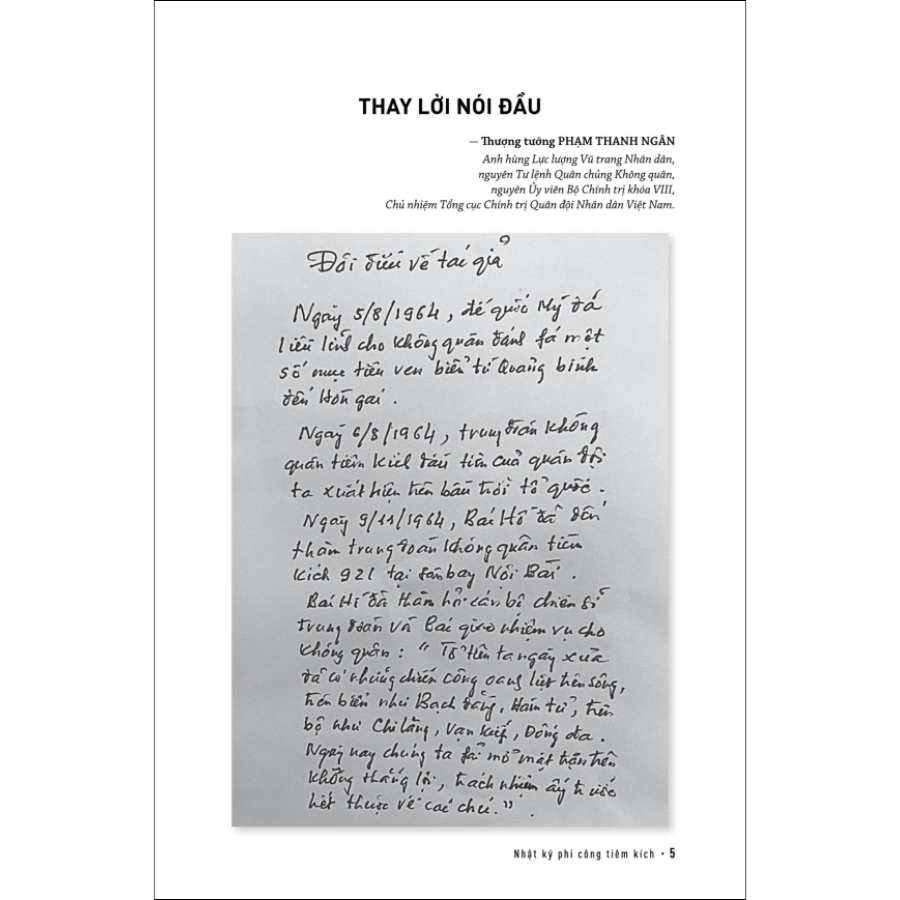 THAY LỜI NÓI ĐẦU
— Thượng tướng PHẠM THANH NGÂN
Anh hùng Lực lượng Vũ trang Nhân dân,
nguyên Tư lệnh Quân chủng Không quân,
nguyên Ủy viên Bộ Chính trị khóa VIII,
Chủ nhiệm Tổng cục Chính trị Quân đội Nhân dân Việt Nam.
Đôi điều về tác giả
Ngày 5/8/1964, đế quốc Mỹ đã
liều lĩnh cho không quân đánh fá một
số mục tiêu ven biển từ Quảng bình
đến Hòn gai.
Ngày 6/8/1964, trung đoàn không
quân tiêm kích đầu tiên của quân đội
ta xuất hiện trên bầu trời tổ quốc.
Ngày 9/11/1964, Bác Hồ đã đến
thăm trung đoàn không quân tiêm
kích 921 tại sân bay Nội Bài.
Bác Hồ đã thăm hỏi cán bộ chiến sĩ
trung đoàn và Bác giao nhiệm vụ cho
không quân: "Tổ tiên ta ngày xưa
đã có những chiến công oanh liệt trên sông,
trên biển như Bạch đằng, Hàm tử, trên
bộ như Chi lăng, Vạn kiếp, Đống đa.
Ngày nay chúng ta fải mở mặt trận trên
không thắng lợi, trách nhiệm ấy trước
hết thuộc về các chú.".
Nhật ký phi công tiêm kích • 5